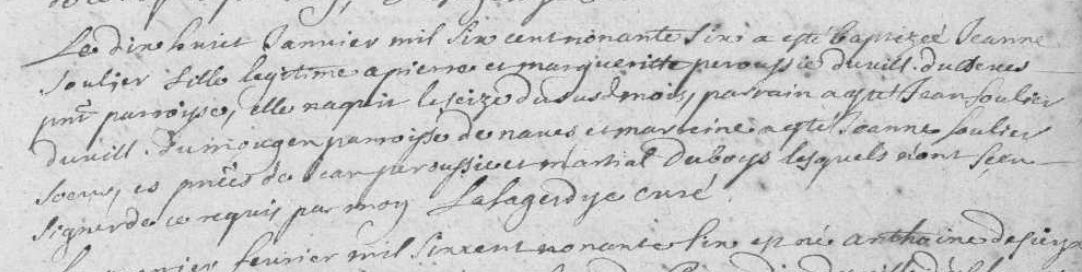 Le dix huict Janvier mil six cent nonante six a esté baptizée Jeanne
soulier fille legitime a pierre et margueritte peroussie du vill. du
pnt parroisse, elle naquit le seize du susd mois, parrain a esté Jean soulier
du vill. du mougen parroisse de naves et marreine a esté Jeanne soulier
soeur, es pnces de Jean peroussie et martial Duboys lesquels n'ont sceu
signer de ce requis par moy Lafagerdye curé
fevrier mil six cent nonante six est né anthoine